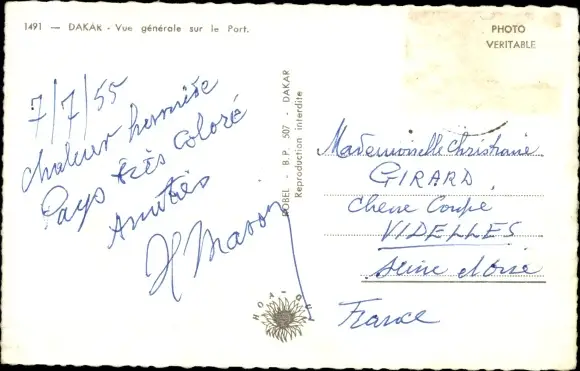 1491 — DAKAR - Vue générale sur le Port.
PHOTO
VERITABLE
7/7/55
chaleur humide
Pays très coloré
Amitiés
H Masson
HOBEL - B.P. 507 - DAKAR
Reproduction interdite
Mademoiselle Christiane
GIRARD
Chene Coupé
VIDELLES
Seine et Oise
France